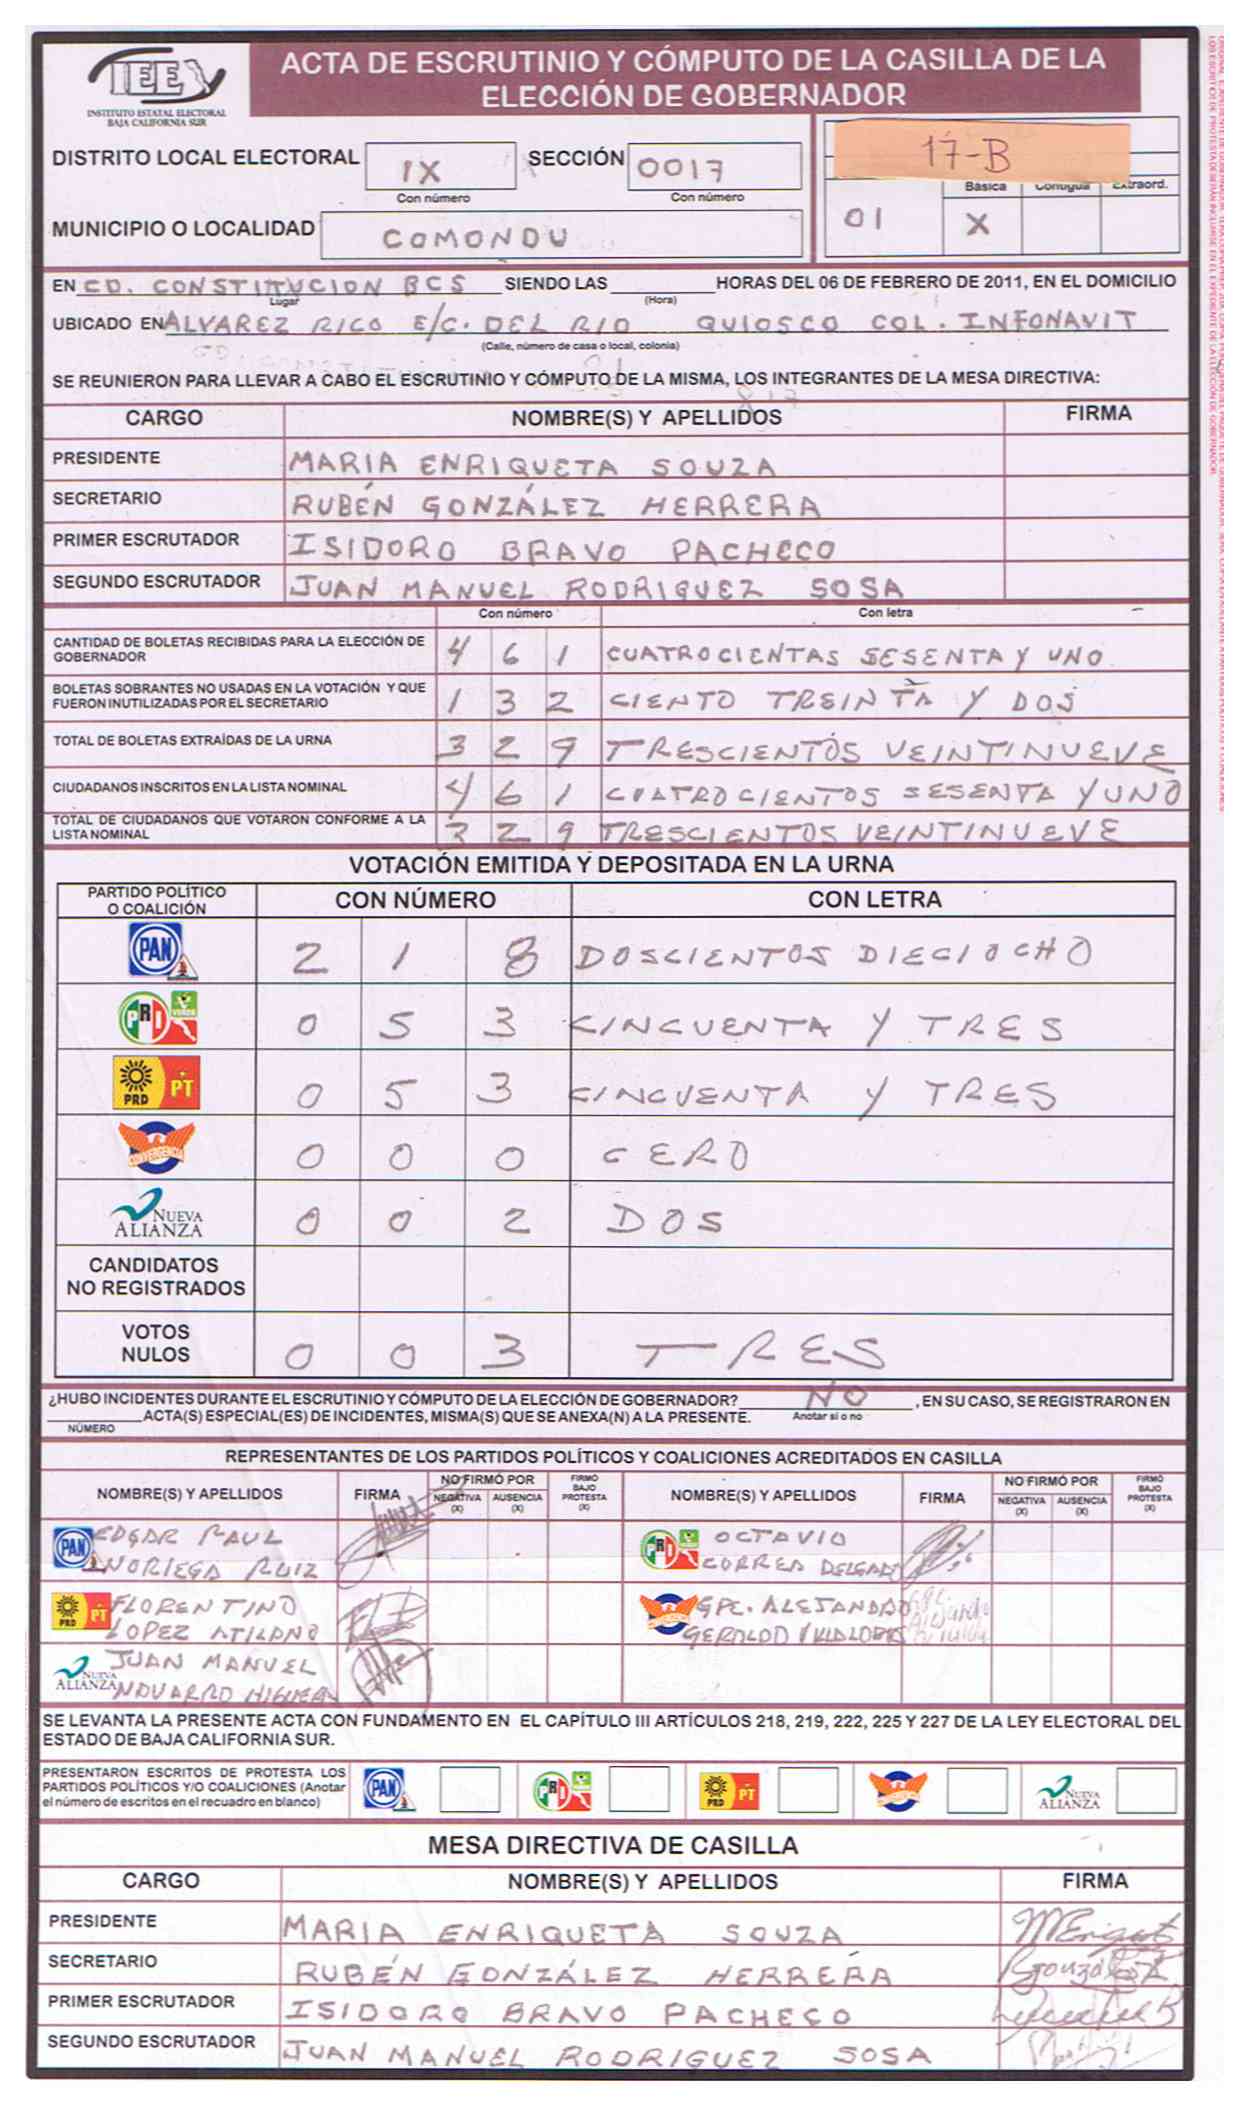 IEE
INSTITUTO ESTATAL ELECTORAL
BAJA CALIFORNIA SUR
ACTA DE ESCRUTINIO Y CÓMPUTO DE LA CASILLA DE LA
ELECCIÓN DE GOBERNADOR
DISTRITO LOCAL ELECTORAL IX SECCIÓN 0017
Con número Con número
17-B
Básica Contigua Extraord.
01 X
MUNICIPIO O LOCALIDAD COMONDU
EN CD. CONSTITUCION BCS SIENDO LAS HORAS DEL 06 DE FEBRERO DE 2011, EN EL DOMICILIO
Lugar (Hora)
UBICADO EN ALVAREZ RICO E/C. DEL RIO QUIOSCO COL. INFONAVIT
(Calle, número de casa o local, colonia)
SE REUNIERON PARA LLEVAR A CABO EL ESCRUTINIO Y CÓMPUTO DE LA MISMA, LOS INTEGRANTES DE LA MESA DIRECTIVA:
CARGO NOMBRE(S) Y APELLIDOS FIRMA
PRESIDENTE MARIA ENRIQUETA SOUZA
SECRETARIO RUBÉN GONZÁLEZ HERRERA
PRIMER ESCRUTADOR ISIDORO BRAVO PACHECO
SEGUNDO ESCRUTADOR JUAN MANUEL RODRIGUEZ SOSA
Con número Con letra
CANTIDAD DE BOLETAS RECIBIDAS PARA LA ELECCIÓN DE
GOBERNADOR 4 6 1 CUATROCIENTAS SESENTA Y UNO
BOLETAS SOBRANTES NO USADAS EN LA VOTACIÓN Y QUE
FUERON INUTILIZADAS POR EL SECRETARIO 1 3 2 CIENTO TREINTA Y DOS
TOTAL DE BOLETAS EXTRAÍDAS DE LA URNA 3 2 9 TRESCIENTOS VEINTINUEVE
CIUDADANOS INSCRITOS EN LA LISTA NOMINAL 4 6 1 CUATROCIENTOS SESENTA Y UNO
TOTAL DE CIUDADANOS QUE VOTARON CONFORME A LA
LISTA NOMINAL 3 2 9 TRESCIENTOS VEINTINUEVE
VOTACIÓN EMITIDA Y DEPOSITADA EN LA URNA
PARTIDO POLÍTICO
O COALICIÓN CON NÚMERO CON LETRA
PAN 2 1 8 DOSCIENTOS DIECIOCHO
PRI VERDE 0 5 3 CINCUENTA Y TRES
PRD PT 0 5 3 CINCUENTA Y TRES
CONVERGENCIA 0 0 0 CERO
NUEVA ALIANZA 0 0 2 DOS
CANDIDATOS
NO REGISTRADOS
VOTOS
NULOS 0 0 3 TRES
¿HUBO INCIDENTES DURANTE EL ESCRUTINIO Y CÓMPUTO DE LA ELECCIÓN DE GOBERNADOR? NO , EN SU CASO, SE REGISTRARON EN
ACTA(S) ESPECIAL(ES) DE INCIDENTES, MISMA(S) QUE SE ANEXA(N) A LA PRESENTE. Anotar sí o no
NÚMERO
REPRESENTANTES DE LOS PARTIDOS POLÍTICOS Y COALICIONES ACREDITADOS EN CASILLA
NOMBRE(S) Y APELLIDOS FIRMA NO FIRMÓ POR NEGATIVA (X) AUSENCIA (X) FIRMÓ BAJO PROTESTA (X) NOMBRE(S) Y APELLIDOS FIRMA NO FIRMÓ POR NEGATIVA (X) AUSENCIA (X) FIRMÓ BAJO PROTESTA (X)
PAN EDGAR RAUL PRI OCTAVIO
NORIEGA RUIZ CORREA DELGADO
PRD PT FLORENTINO GPE. ALEJANDRO
LOPEZ ATILANO GERALDO
NUEVA ALIANZA JUAN MANUEL
NAVARRO HIGUERA
SE LEVANTA LA PRESENTE ACTA CON FUNDAMENTO EN EL CAPÍTULO III ARTÍCULOS 218, 219, 222, 225 Y 227 DE LA LEY ELECTORAL DEL
ESTADO DE BAJA CALIFORNIA SUR.
PRESENTARON ESCRITOS DE PROTESTA LOS
PARTIDOS POLÍTICOS Y/O COALICIONES (Anotar
el número de escritos en el recuadro en blanco) PAN PRI PRD PT NUEVA ALIANZA
MESA DIRECTIVA DE CASILLA
CARGO NOMBRE(S) Y APELLIDOS FIRMA
PRESIDENTE MARIA ENRIQUETA SOUZA
SECRETARIO RUBÉN GONZÁLEZ HERRERA
PRIMER ESCRUTADOR ISIDORO BRAVO PACHECO
SEGUNDO ESCRUTADOR JUAN MANUEL RODRIGUEZ SOSA